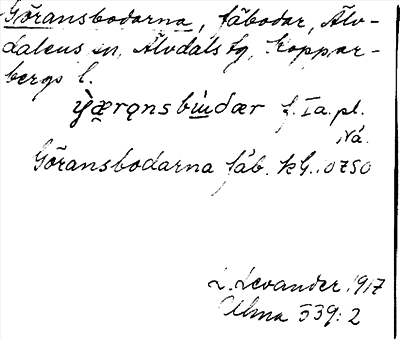 Göransbodarna, fäbodar, Älv-
dalens sn, Älvdals tg, Koppar-
bergs l.
f. Ia. pl.
Göransbodarna fäb. kG. 0750
L. Levander 1917
Ulma 339: 2